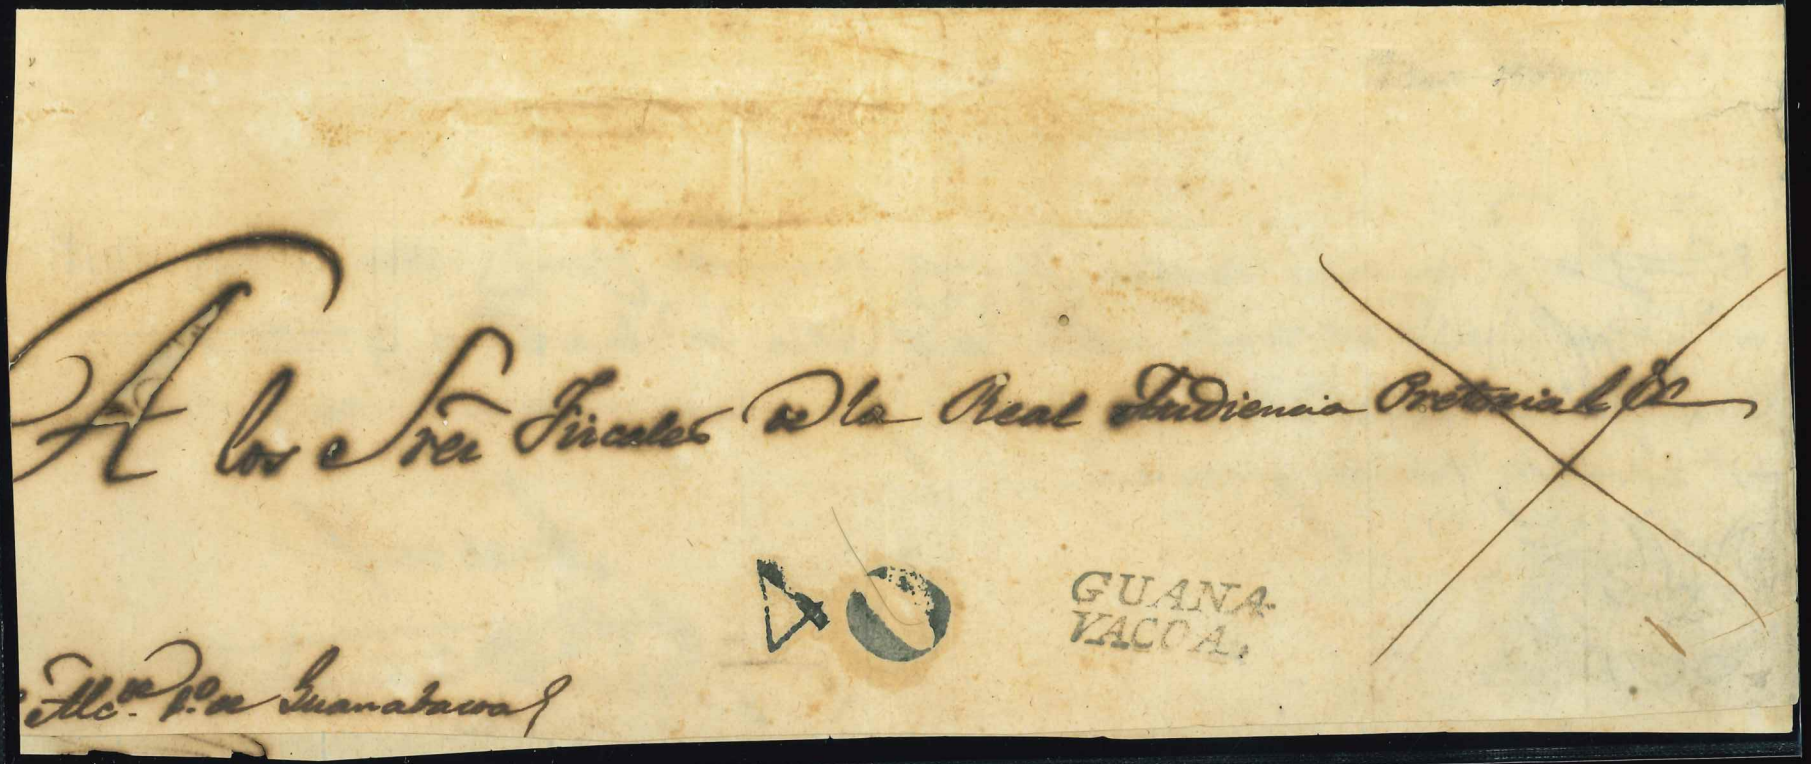 A los Sres Fiscales de la Real Audiencia Pretorial &ª
40
GUANA-
VACOA.
Alc.de 1.º de Guanabacoa